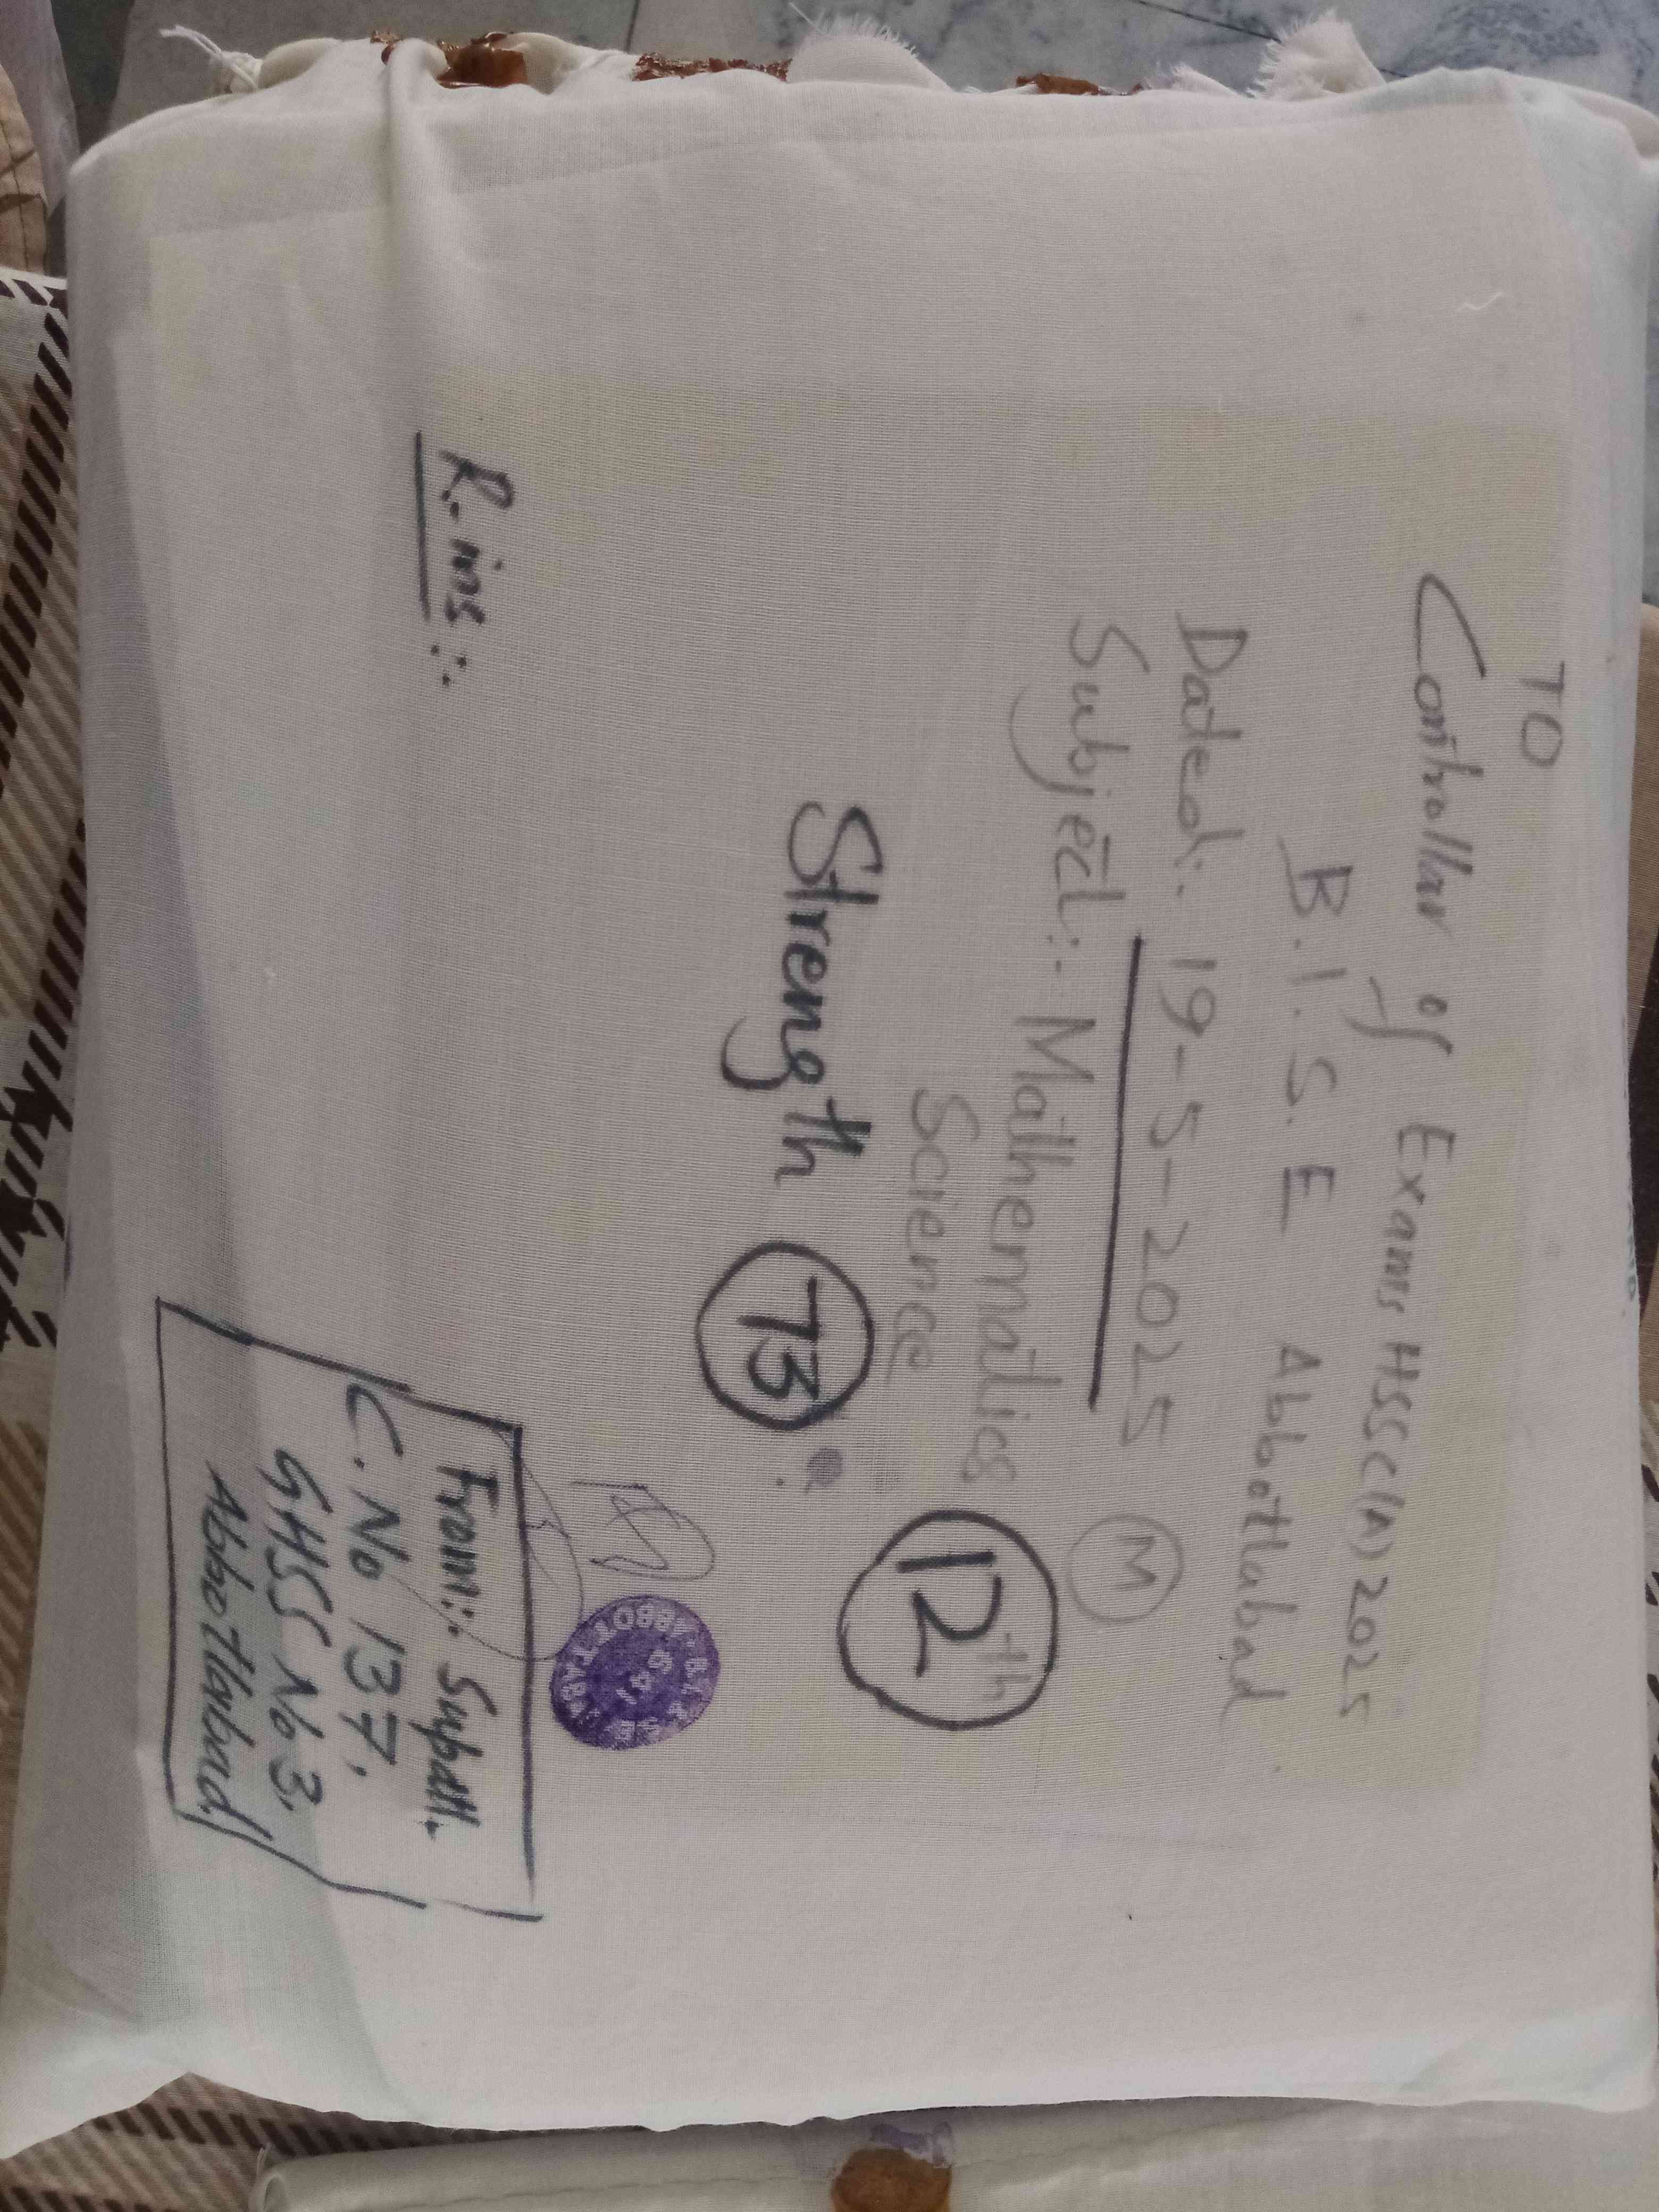 TO
Controllar of Exams HSSC(A) 2025
B.I.S.E Abbottabad
Dated:. 19-5-2025 M
Subject:- Mathematics 12th
Science
Strength 73
R.ins:-
From:. Supdtt.
C.No 137,
GHSS No 3,
Abbottabad